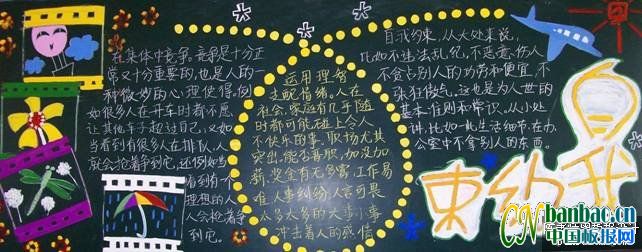 在集体中竞争。竞争是十分正
常又十分重要的,也是人的一
种微妙的心理使得,例
如很多人在开车时都不愿
让其他车子超过自己,又如
当看到有很多人在排队,人
就会抢着争到它,还例如当
看到有一个
理想的人
人会抢着争
到它
运用理智
支配情绪。人在
社会,家庭有几乎随
时都可能碰上令人
不快乐的事,职场尤其
突出,能否晋职,加没加
薪,奖金有无多寡,工作易
难,人事纠纷,人言可畏
从多太多的大事小事
冲击着人的感情
自我约束,从大处来说,
比如不违法乱纪,不恶意伤人
不会占别人的功劳和便宜,不
张狂傲气,这也是为人处世的
基本准则和常识,从小处
讲,比如一些生活细节,在办
公室中不拿别人的东西。
束约
CNbanbao.cn
中国板报网